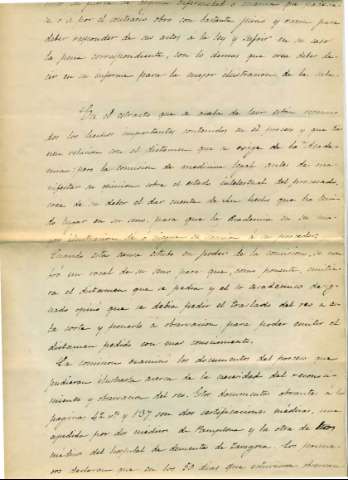 ó si por el contrario obró con bastante juicio y razon para
deber responder de sus actos á la ley y sufrir en su caso
la pena correspondiente, con lo demas que crea deber de-
cir en su informe para la mayor ilustracion de la sala.
En el extracto que se acaba de leer estan reuni-
dos los hechos importantes contenidos en el proceso y que tie-
nen relacion con el dictamen que se exige de la Acade-
mia; pero la comision de medicina legal antes de ma-
nifestar su opinion sobre el estado intelectual del procesado,
cree de su deber el dar cuenta de un hecho que ha teni-
do lugar en su seno, para que la Academia en su ma-
Cuando esta causa estubo en poder de la comision, se nom-
bró un vocal de su seno para que, como ponente, emitie-
ra el dictamen que se pedia y el Sr. academico desig-
nado opinó que se debia pedir el traslado del reo a es-
ta corte y ponerlo á observacion para poder emitir el
dictamen pedido con mas conocimiento.
La comision examinó los documentos del proceso que
pudieran ilustrarla acerca de la necesidad del reconoci-
miento y observacion del reo. Estos documentos obrantes á las
paginas 42 vta y 137 son dos certificaciones médicas, una
expedida por dos medicos de Pamplona y la otra de dos
médicos del hospital de dementes de Zaragoza. Los prime-
ros declaran que en los 50 dias que estuvieron observan-